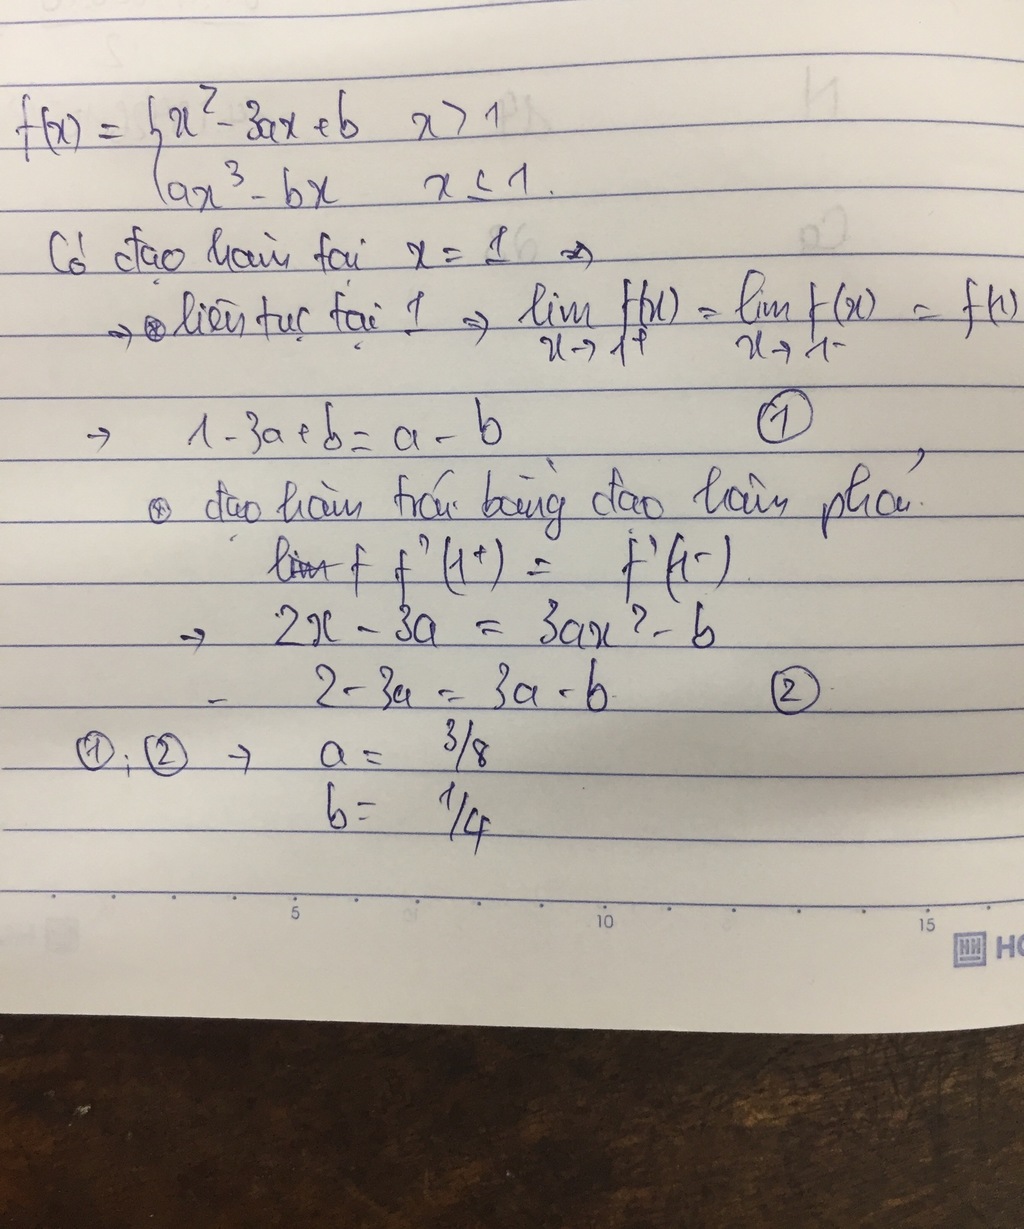 f(x) = { x² - 3ax + b x > 1
ax³ - bx x ≤ 1.
Có đạo hàm tại x = 1 ⇒
→ ⊛ liên tục tại 1 ⇒ lim f(x) = lim f(x) = f(1)
x→1⁺ x→1⁻
→ 1 - 3a + b = a - b ①
⊛ đạo hàm trái bằng đạo hàm phải
f'(1⁺) = f'(1⁻)
→ 2x - 3a = 3ax² - b
- 2 - 3a = 3a - b ②
①; ② → a = 3/8
b = 1/4
5 10 15
HO